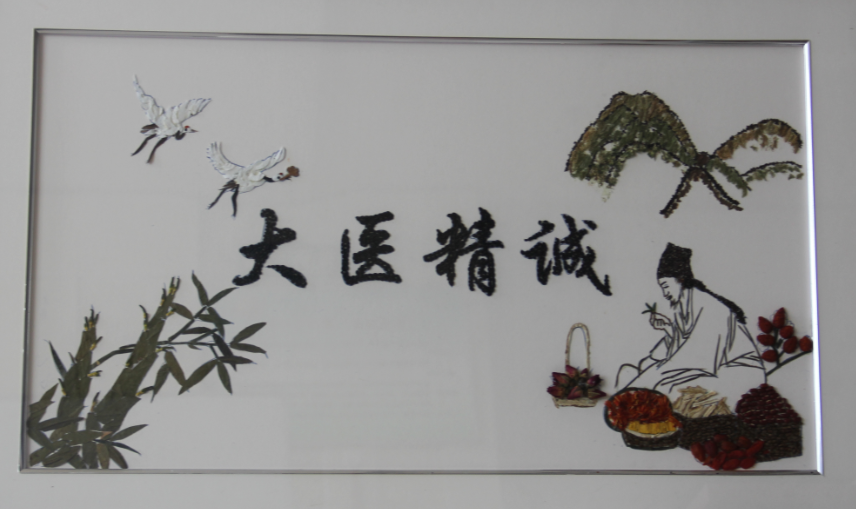 大医精诚